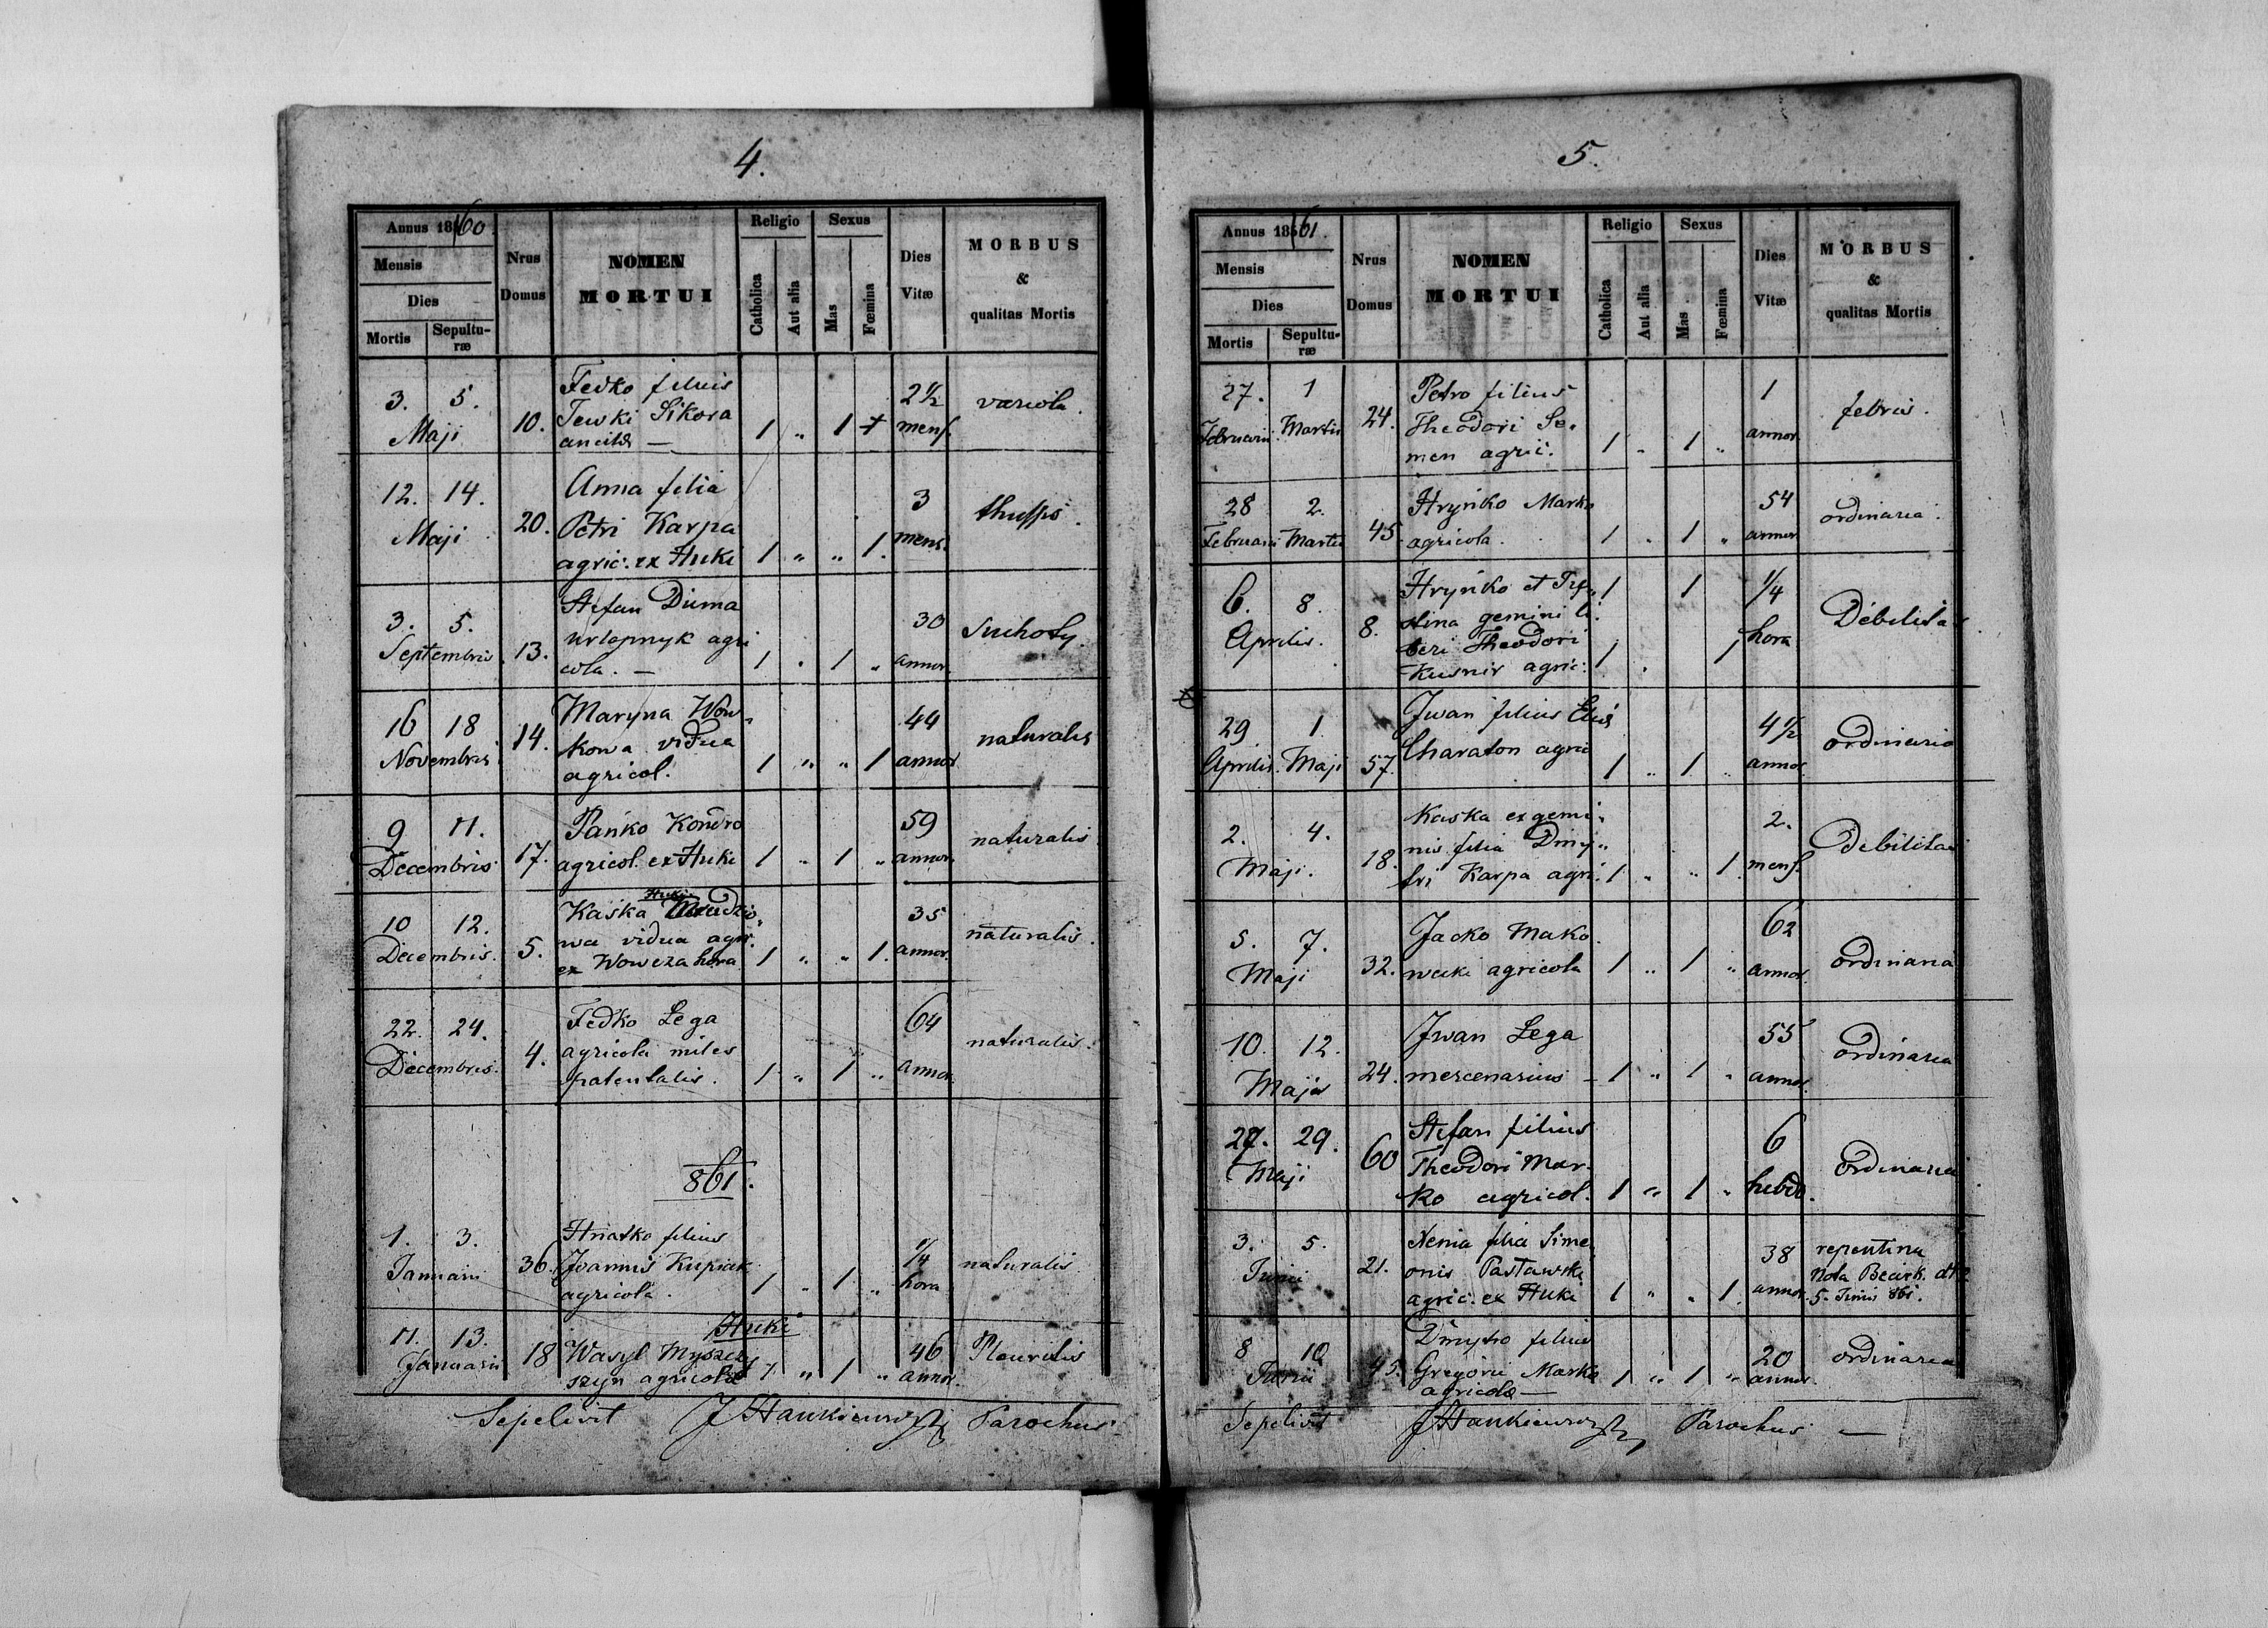 4.
Annus 1860.
Mensis
Dies
Mortis
Sepultu-
ræ
Nrus
Domus
NOMEN
MORTUI
Religio
Catholica
Aut alia
Sexus
Mas
Fœmina
Dies
Vitæ
MORBUS
&
qualitas Mortis
3. 5.
Maji
10.
Fedko filius
Tewki Sikora
1 „ 1
2 1/2
mens.
variola.
12. 14.
Maji
20.
Anna filia
Petri Karpa
agric. ex Huki
1 „ „ 1.
3
mens.
3. 5.
Septembris
13.
Stefan Duma
urlopnyk agri
cola. —
1 „ 1 „
30
annor.
Suchoty.
16 18
Novembris
14.
Maryna Wow-
kowa vidua
agricol.
1 „ „ 1
44
annor
naturalis
9 11.
Decembris
17.
Pańko Kondro
agricol. ex Huki
1 „ 1 „
59
annor.
naturalis
10 12.
Decembris.
5.
Huki
Kaśka
wa vidua agri.
ex Wowcza hora
1 „ „ 1.
35
annor.
naturalis.
22. 24.
Decembris.
4.
Fedko Lega
agricola miles
patentalis.
1 „ 1 „
64
annor.
naturalis.
861.
1. 3.
Januarii
36.
Hnatko filius
Joannis Kupiak
agricola.
1 „ 1 „
1/4
hora
naturalis
11. 13.
Januarii
18
Huki
Wasyl Myszczy
szyn agricola
1 „ 1 „
46
annor.
Pleuritis
Sepelivit JHankiewicz Parochus
5.
Annus 1861.
Mensis
Dies
Mortis
Sepultu-
ræ
Nrus
Domus
NOMEN
MORTUI
Religio
Catholica
Aut alia
Sexus
Mas
Fœmina
Dies
Vitæ
MORBUS
&
qualitas Mortis
27. 1
Februarii Martii
24.
Petro filius
Theodori Se-
men agric.
1 „ 1 „
1
annor.
febris.
28 2.
Februarii Martii
45
Hryńko Marko
agricola.
1 „ 1 „
54
annor
ordinaria.
6. 8.
Aprilis.
8.
Hryńko et
stina gemini li-
beri Theodori
Kusnir agric.
1 1
1 „ 1
1/4
hora
Debilitas
29 1.
Aprilis. Maji
57.
Jwan filius Eliæ
Charaton agric
1 „ 1 „
4 1/2
annor.
ordinaria
2. 4.
Maji.
18.
Kaska ex gemi-
nis filia Dmy-
tri Karpa agri.
1 „ „ 1.
2.
mens.
Debilitas
5. 7.
Maji
32.
Jacko Mako
wecki agricola
1 „ 1 „
62
annor.
ordinaria
10. 12.
Maja
24.
Jwan Lega
mercenarius —
1 „ 1 „
55
annor.
ordinaria
27. 29.
Maji
60
Stefan filius
Theodori Mar-
ko agricol.
1 „ 1 „
6
hebd.
ordinaria
3. 5.
Junii
21.
Xenia filia Sime
onis Pastawski
agric. ex Huki
1 „ „ 1.
38
annor.
repentina
Nota Bezirk. dto
5. Junii 861.
8 10
Junii
45.
Dmytro filius
Gregorii Marko
agricola —
1 „ 1 „
20
annor.
ordinaria
Sepelivit JHankiewicz Parochus —